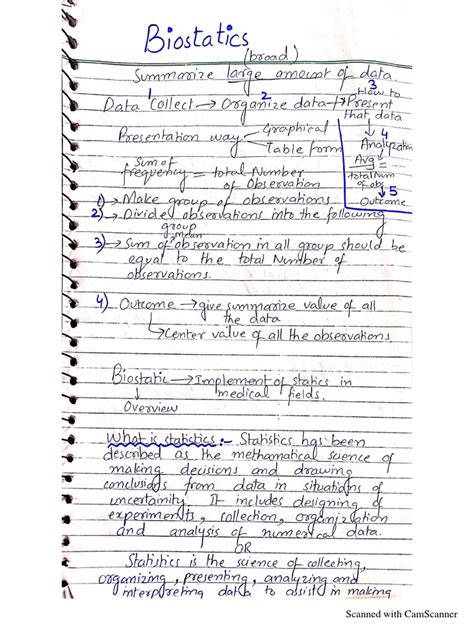 Biostatics
(broad)
Summarize large amount of data.
1 2 3 How to
Data Collect → Organize data → Present
that data
Presentation way Graphical
Table form
4
Analyzation
Avg =
total Num
of obs
5
Outcome
Sum of
frequency = total Number
of Observation
1) → Make group of observations
2) → Divide observations into the following
group
mean
3) → Sum of observation in all group should be
equal to the total Number of
observations.
4) Outcome → give summarize value of all
the data
Center value of all the observations
Biostatic → Implement of statics in
medical fields.
Overview
What is statistics :- Statistics has been
described as the methamatical science of
making decisions and drawing
conclusions from data in situations of
uncertainity. It includes designing of
experiments, collection, organization
and analysis of numerical data.
OR
Statistics is the science of collecting,
organizing, presenting, analyzing and
interpreting data to assist in making
Scanned with CamScanner